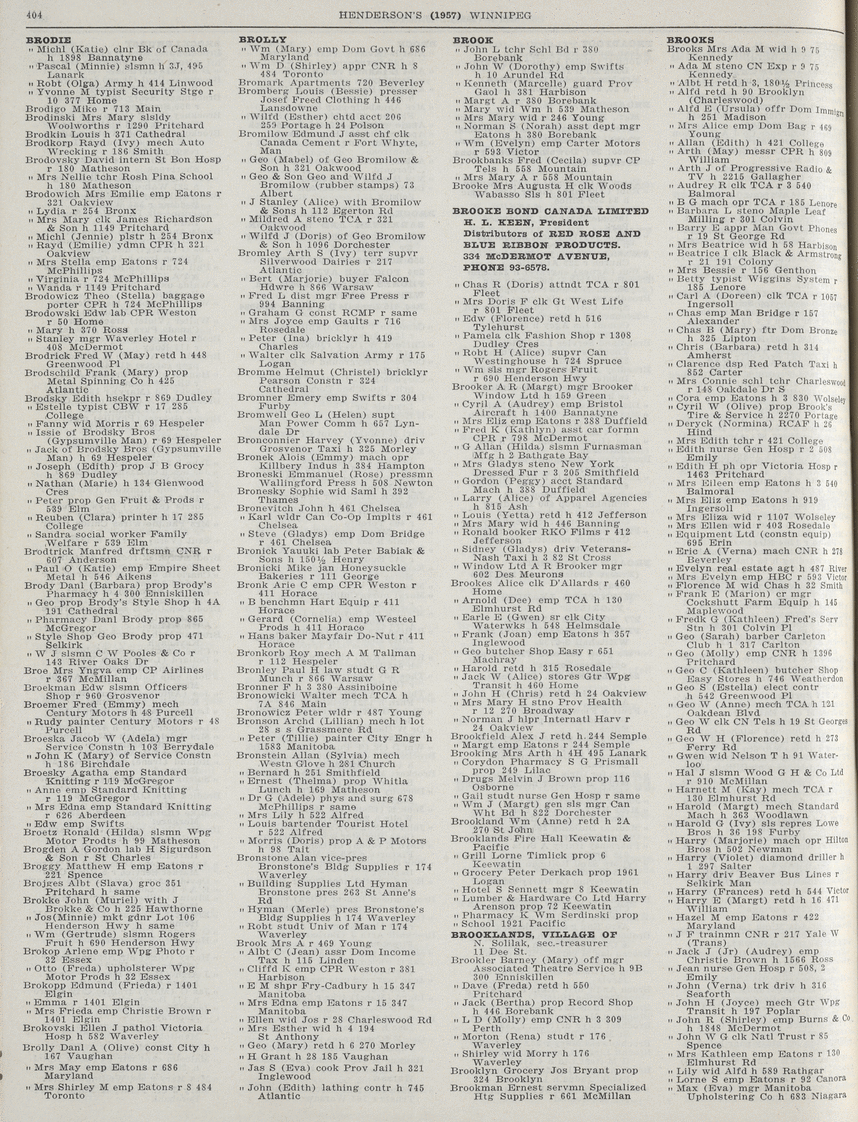 404
HENDERSON'S (1957) WINNIPEG
BRODIE
" Michl (Katie) clnr Bk of Canada
h 1898 Bannatyne
" Pascal (Minnie) slsmn h 3J, 495
Lanark
" Robt (Olga) Army h 414 Linwood
" Yvonne M typist Security Stge r
10 377 Home
Brodigo Mike r 713 Main
Brodinski Mrs Mary slsldy
Woolworths r 1290 Pritchard
Brodkin Louis h 371 Cathedral
Brodkorp Rayd (Ivy) mech Auto
Wrecking r 186 Smith
Brodovsky David intern St Bon Hosp
r 180 Matheson
" Mrs Nellie tchr Rosh Pina School
h 180 Matheson
Brodowich Mrs Emilie emp Eatons r
321 Oakview
" Lydia r 254 Bronx
" Mrs Mary clk James Richardson
& Son h 1149 Pritchard
" Michl (Jennie) plstr h 254 Bronx
" Rayd (Emilie) ydmn CPR h 321
Oakview
" Mrs Stella emp Eatons r 724
McPhillips
" Virginia r 724 McPhillips
" Wanda r 1149 Pritchard
Brodowicz Theo (Stella) baggage
porter CPR h 724 McPhillips
Brodowski Edw lab CPR Weston
r 50 Home
" Mary h 370 Ross
" Stanley mgr Waverley Hotel r
408 McDermot
Brodrick Fred W (May) retd h 448
Greenwood Pl
Brodschild Frank (Mary) prop
Metal Spinning Co h 425
Atlantic
Brodsky Edith hsekpr r 869 Dudley
" Estelle typist CBW r 17 285
College
" Fanny wid Morris r 69 Hespeler
" Issie of Brodsky Bros
(Gypsumville Man) r 69 Hespeler
" Jack of Brodsky Bros (Gypsumville
Man) h 69 Hespeler
" Joseph (Edith) prop J B Grocy
h 869 Dudley
" Nathan (Marie) h 134 Glenwood
Cres
" Peter prop Gen Fruit & Prods r
539 Elm
" Reuben (Clara) printer h 17 285
College
" Sandra social worker Family
Welfare r 539 Elm
Brodtrick Manfred drftsmn CNR r
607 Anderson
" Paul O (Katie) emp Empire Sheet
Metal h 546 Aikens
Brody Danl (Barbara) prop Brody's
Pharmacy h 4 300 Enniskillen
" Geo prop Brody's Style Shop h 4A
191 Cathedral
" Pharmacy Danl Brody prop 865
McGregor
" Style Shop Geo Brody prop 471
Selkirk
" W J slsmn C W Pooles & Co r
143 River Oaks Dr
Broe Mrs Yngva emp CP Airlines
r 367 McMillan
Broekman Edw slsmn Officers
Shop r 960 Grosvenor
Broemer Fred (Emmy) mech
Century Motors h 48 Purcell
" Rudy painter Century Motors r 48
Purcell
Broeska Jacob W (Adela) mgr
Service Constn h 103 Berrydale
" John K (Mary) of Service Constn
h 186 Birchdale
Broesky Agatha emp Standard
Knitting r 119 McGregor
" Anne emp Standard Knitting
r 119 McGregor
" Mrs Edna emp Standard Knitting
r 626 Aberdeen
" Edw emp Swifts
Broetz Ronald (Hilda) slsmn Wpg
Motor Prodts h 99 Matheson
Brogden A Gordon lab H Sigurdson
& Son r St Charles
Broggy Matthew H emp Eatons r
221 Spence
Brojges Albt (Slava) groc 351
Pritchard h same
Brokke John (Muriel) with J
Brokke & Co h 225 Hawthorne
" Jos(Minnie) mkt gdnr Lot 106
Henderson Hwy h same
" Wm (Gertrude) slsmn Rogers
Fruit h 690 Henderson Hwy
Brokop Arlene emp Wpg Photo r
32 Essex
" Otto (Freda) upholsterer Wpg
Motor Prods h 32 Essex
Brokopp Edmund (Frieda) r 1401
Elgin
" Emma r 1401 Elgin
" Mrs Frieda emp Christie Brown r
1401 Elgin
Brokovski Ellen J pathol Victoria
Hosp h 582 Waverley
Brolly Danl A (Olive) const City h
167 Vaughan
" Mrs May emp Eatons r 686
Maryland
" Mrs Shirley M emp Eatons r 8 484
Toronto
BROLLY
" Wm (Mary) emp Dom Govt h 686
Maryland
" Wm D (Shirley) appr CNR h 8
484 Toronto
Bromark Apartments 720 Beverley
Bromberg Louis (Bessie) presser
Josef Freed Clothing h 446
Lansdowne
" Wilfd (Esther) chtd acct 206
259 Portage h 24 Polson
Bromilow Edmund J asst chf clk
Canada Cement r Fort Whyte,
Man
" Geo (Mabel) of Geo Bromilow &
Son h 321 Oakwood
" Geo & Son Geo and Wilfd J
Bromilow (rubber stamps) 73
Albert
" J Stanley (Alice) with Bromilow
& Sons h 112 Egerton Rd
" Mildred A steno TCA r 321
Oakwood
" Wilfd J (Doris) of Geo Bromilow
& Sons h 1096 Dorchester
Bromley Arth S (Ivy) terr supvr
Silverwood Dairies r 217
Atlantic
" Bert (Marjorie) buyer Falcon
Hdwre h 866 Warsaw
" Fred L dist mgr Free Press r
994 Banning
" Graham G const RCMP r same
" Mrs Joyce emp Gaults r 716
Rosedale
" Peter (Ina) bricklyr h 419
Charles
" Walter clk Salvation Army r 175
Logan
Bromme Helmut (Christel) bricklyr
Pearson Constn r 324
Cathedral
Bromner Emery emp Swifts r 304
Furby
Bromwell Geo L (Helen) supt
Man Power Comm h 657 Lyndale Dr
Bronconnier Harvey (Yvonne) driv
Grosvenor Taxi h 325 Morley
Bronek Alois (Emmy) mach opr
Killbery Indus h 384 Hampton
Broneski Emmanuel (Rose) pressmn
Wallingford Press h 508 Newton
Bronesky Sophie wid Saml h 392
Thames
Bronevitch John h 461 Chelsea
" Karl wldr Can Co-Op Implts r 461
Chelsea
" Steve (Gladys) emp Dom Bridge
r 461 Chelsea
Bronick Yauuki lab Peter Babiak &
Sons h 150½ Henry
Bronicki Mike jan Honeysuckle
Bakeries r 111 George
Bronk Arie C emp CPR Weston r
411 Horace
" B benchmn Hart Equip r 411
Horace
" Gerard (Cornelia) emp Westeel
Prods h 411 Horace
" Hans baker Mayfair Do-Nut r 411
Horace
Bronkorb Roy mech A M Tallman
r 112 Hespeler
Bronley Paul H law studt G R
Munch r 866 Warsaw
Bronner F h 3 380 Assiniboine
Bronowicki Walter mech TCA h
7A 846 Main
Bronowicz Peter wldr r 487 Young
Bronson Archd (Lillian) mech h lot
28 s s Grassmere Rd
" Peter (Tillie) painter City Engr h
1583 Manitoba
Bronstein Allan (Sylvia) mech
Westn Glove h 281 Church
" Bernard h 251 Smithfield
" Ernest (Thelma) prop Whitla
Lunch h 169 Matheson
" Dr G (Adele) phys and surg 678
McPhillips r same
" Mrs Lily h 522 Alfred
" Louis bartender Tourist Hotel
r 522 Alfred
" Morris (Doris) prop A & P Motors
h 98 Tait
Bronstone Alan vice-pres
Bronstone's Bldg Supplies r 174
Waverley
" Building Supplies Ltd Hyman
Bronstone pres 263 St Anne's
Rd
" Hyman (Merle) pres Bronstone's
Bldg Supplies h 174 Waverley
" Robt studt Univ of Man r 174
Waverley
Brook Mrs A r 469 Young
" Albt C (Jean) assr Dom Income
Tax h 115 Linden
" Cliffd K emp CPR Weston r 381
Harbison
" E M shpr Fry-Cadbury h 15 347
Manitoba
" Mrs Edna emp Eatons r 15 347
Manitoba
" Ellen wid Jos r 28 Charleswood Rd
" Mrs Esther wid h 4 194
St Anthony
" Geo (Mary) retd h 6 270 Morley
" H Grant h 28 185 Vaughan
" Jas S (Eva) cook Prov Jail h 321
Inglewood
" John (Edith) lathing contr h 745
Atlantic
BROOK
" John L tchr Schl Bd r 380
Borebank
" John W (Dorothy) emp Swifts
h 10 Arundel Rd
" Kenneth (Marcelle) guard Prov
Gaol h 381 Harbison
" Margt A r 380 Borebank
" Mary wid Wm h 539 Matheson
" Mrs Mary wid r 246 Young
" Norman S (Norah) asst dept mgr
Eatons h 380 Borebank
" Wm (Evelyn) emp Carter Motors
r 593 Victor
Brookbanks Fred (Cecilia) supvr CP
Tels h 558 Mountain
" Mrs Mary A r 558 Mountain
Brooke Mrs Augusta H clk Woods
Wabasso Sls h 801 Fleet
BROOKE BOND CANADA LIMITED
H. L. KEEN, President
Distributors of RED ROSE AND
BLUE RIBBON PRODUCTS.
334 McDERMOT AVENUE,
PHONE 93-6578.
" Chas R (Doris) attndt TCA r 801
Fleet
" Mrs Doris F clk Gt West Life
r 801 Fleet
" Edw (Florence) retd h 516
Tylehurst
" Pamela clk Fashion Shop r 1308
Dudley Cres
" Robt H (Alice) supvr Can
Westinghouse h 724 Spruce
" Wm sls mgr Rogers Fruit
r 690 Henderson Hwy
Brooker A R (Margt) mgr Brooker
Window Ltd h 159 Green
" Cyril A (Audrey) emp Bristol
Aircraft h 1400 Bannatyne
" Mrs Eliz emp Eatons r 388 Duffield
" Fred K (Kathlyn) asst car formn
CPR r 798 McDermot
" G Allan (Hilda) slsmn Furnasman
Mfg h 2 Bathgate Bay
" Mrs Gladys steno New York
Dressed Fur r 3 205 Smithfield
" Gordon (Peggy) acct Standard
Mach h 388 Duffield
" Larry (Alice) of Apparel Agencies
h 815 Ash
" Louis (Yetta) retd h 412 Jefferson
" Mrs Mary wid h 446 Banning
" Ronald booker RKO Films r 412
Jefferson
" Sidney (Gladys) driv Veterans-
Nash Taxi h 3 82 St Cross
" Window Ltd A R Brooker mgr
602 Des Meurons
Brookes Alice clk D'Allards r 460
Home
" Arnold (Dee) emp TCA h 130
Elmhurst Rd
" Earle E (Gwen) sr clk City
Waterwks h 548 Helmsdale
" Frank (Joan) emp Eatons h 357
Inglewood
" Geo butcher Shop Easy r 651
Machray
" Harold retd h 315 Rosedale
" Jack W (Alice) stores Gtr Wpg
Transit h 460 Home
" John H (Chris) retd h 24 Oakview
" Mrs Mary H stno Prov Health
r 12 270 Broadway
" Norman J hlpr Internatl Harv r
24 Oakview
Brookfield Alex J retd h 244 Semple
" Margt emp Eatons r 244 Semple
Brooking Mrs Arth h 4H 495 Lanark
" Corydon Pharmacy S G Prismall
prop 249 Lilac
" Drugs Melvin J Brown prop 116
Osborne
" Gail studt nurse Gen Hosp r same
" Wm J (Margt) gen sls mgr Can
Wht Bd h 822 Dorchester
Brookland Wm (Anne) retd h 2A
270 St John
Brooklands Fire Hall Keewatin &
Pacific
" Grill Lorne Timlick prop 6
Keewatin
" Grocery Peter Derkach prop 1961
Logan
" Hotel S Sennett mgr 8 Keewatin
" Lumber & Hardware Co Ltd Harry
Arenson prop 72 Keewatin
" Pharmacy K Wm Serdinski prop
" School 1921 Pacific
BROOKLANDS, VILLAGE OF
N. Solilak, sec.-treasurer
11 Dee St.
Brookler Barney (Mary) off mgr
Associated Theatre Service h 9B
300 Enniskillen
" Dave (Freda) retd h 550
Pritchard
" Jack (Bertha) prop Record Shop
h 446 Borebank
" L D (Molly) emp CNR h 3 309
Perth
" Morton (Rena) studt r 176
Waverley
" Shirley wid Morry h 176
Waverley
Brooklyn Grocery Jos Bryant prop
324 Brooklyn
Brookman Ernest servmn Specialized
Htg Supplies r 661 McMillan
BROOKS
Brooks Mrs Ada M wid h 9 75
Kennedy
" Ada M steno CN Exp r 9 75
Kennedy
" Albt H retd h 3, 180½ Princess
" Alfd retd h 90 Brooklyn
(Charleswood)
" Alfd E (Ursula) offr Dom Immigrn
h 251 Madison
" Mrs Alice emp Dom Bag r 469
Young
" Allan (Edith) h 421 College
" Arth (May) messr CPR h 809
William
" Arth J of Progressive Radio &
TV h 2215 Gallagher
" Audrey R clk TCA r 3 540
Balmoral
" B G mach opr TCA r 185 Lenore
" Barbara L steno Maple Leaf
Milling r 301 Colvin
" Barry E appr Man Govt Phones
r 19 St George Rd
" Mrs Beatrice wid h 58 Harbison
" Beatrice I clk Black & Armstrong
r 21 191 Colony
" Mrs Bessie r 156 Genthon
" Betty typist Wiggins System r
185 Lenore
" Carl A (Doreen) clk TCA r 1057
Ingersoll
" Chas emp Man Bridge r 157
Alexander
" Chas B (Mary) ftr Dom Bronze
h 325 Lipton
" Chris (Barbara) retd h 314
Amherst
" Clarence dsp Red Patch Taxi h
852 Carter
" Mrs Connie schl tchr Charleswood
r 148 Oakdale Dr S
" Cora emp Eatons h 3 830 Wolseley
" Cyril W (Olive) prop Brook's
Tire & Service h 2270 Portage
" Deryck (Normina) RCAF h 26
Hind
" Mrs Edith tchr r 421 College
" Edith nurse Gen Hosp r 2 508
Emily
" Edith H ph opr Victoria Hosp r
1463 Pritchard
" Mrs Eileen emp Eatons h 3 540
Balmoral
" Mrs Eliz emp Eatons h 919
Ingersoll
" Mrs Eliza wid r 1107 Wolseley
" Mrs Ellen wid r 403 Rosedale
" Equipment Ltd (constn equip)
695 Erin
" Eric A (Verna) mach CNR h 278
Beverley
" Evelyn real estate agt h 487 River
" Mrs Evelyn emp HBC r 593 Victor
" Florence M wid Chas h 32 Smith
" Frank E (Marion) cr mgr
Cockshutt Farm Equip h 145
Maplewood
" Fredk G (Kathleen) Fred's Serv
Stn h 301 Colvin Pl
" Geo (Sarah) barber Carleton
Club h 1 317 Carlton
" Geo (Molly) emp CNR h 1396
Pritchard
" Geo C (Kathleen) butcher Shop
Easy Stores h 746 Weatherdon
" Geo S (Estella) elect contr
h 542 Greenwood Pl
" Geo W (Anne) mech TCA h 121
Oakdean Blvd
" Geo W clk CN Tels h 19 St Georges
Rd
" Geo W H (Florence) retd h 273
Ferry Rd
" Gwen wid Nelson T h 91 Waterloo
" Hal J slsmn Wood G H & Co Ltd
r 910 McMillan
" Harnett M (Kay) mech TCA r
130 Elmhurst Rd
" Harold (Margt) mech Standard
Mach h 363 Woodlawn
" Harold G (Ivy) sls repres Lowe
Bros h 36 198 Furby
" Harry (Marjorie) mach opr Hilton
Bros h 502 Newman
" Harry (Violet) diamond driller h
1 297 Salter
" Harry driv Beaver Bus Lines r
Selkirk Man
" Harry (Frances) retd h 544 Victor
" Harry E (Margt) retd h 16 471
William
" Hazel M emp Eatons r 422
Maryland
" J F trainmn CNR r 217 Yale W
(Trans)
" Jack J (Jr) (Audrey) emp
Christie Brown h 1566 Ross
" Jean nurse Gen Hosp r 508, 2
Emily
" John (Verna) trk driv h 316
Seaforth
" John H (Joyce) mech Gtr Wpg
Transit h 197 Poplar
" John R (Shirley) emp Burns & Co
h 1848 McDermot
" John W G clk Natl Trust r 85
Spence
" Mrs Kathleen emp Eatons r 130
Elmhurst Rd
" Lily wid Alfd h 589 Rathgar
" Lorne S emp Eatons r 92 Canora
" Max (Eva) mgr Manitoba
Upholstering Co h 683 Niagara